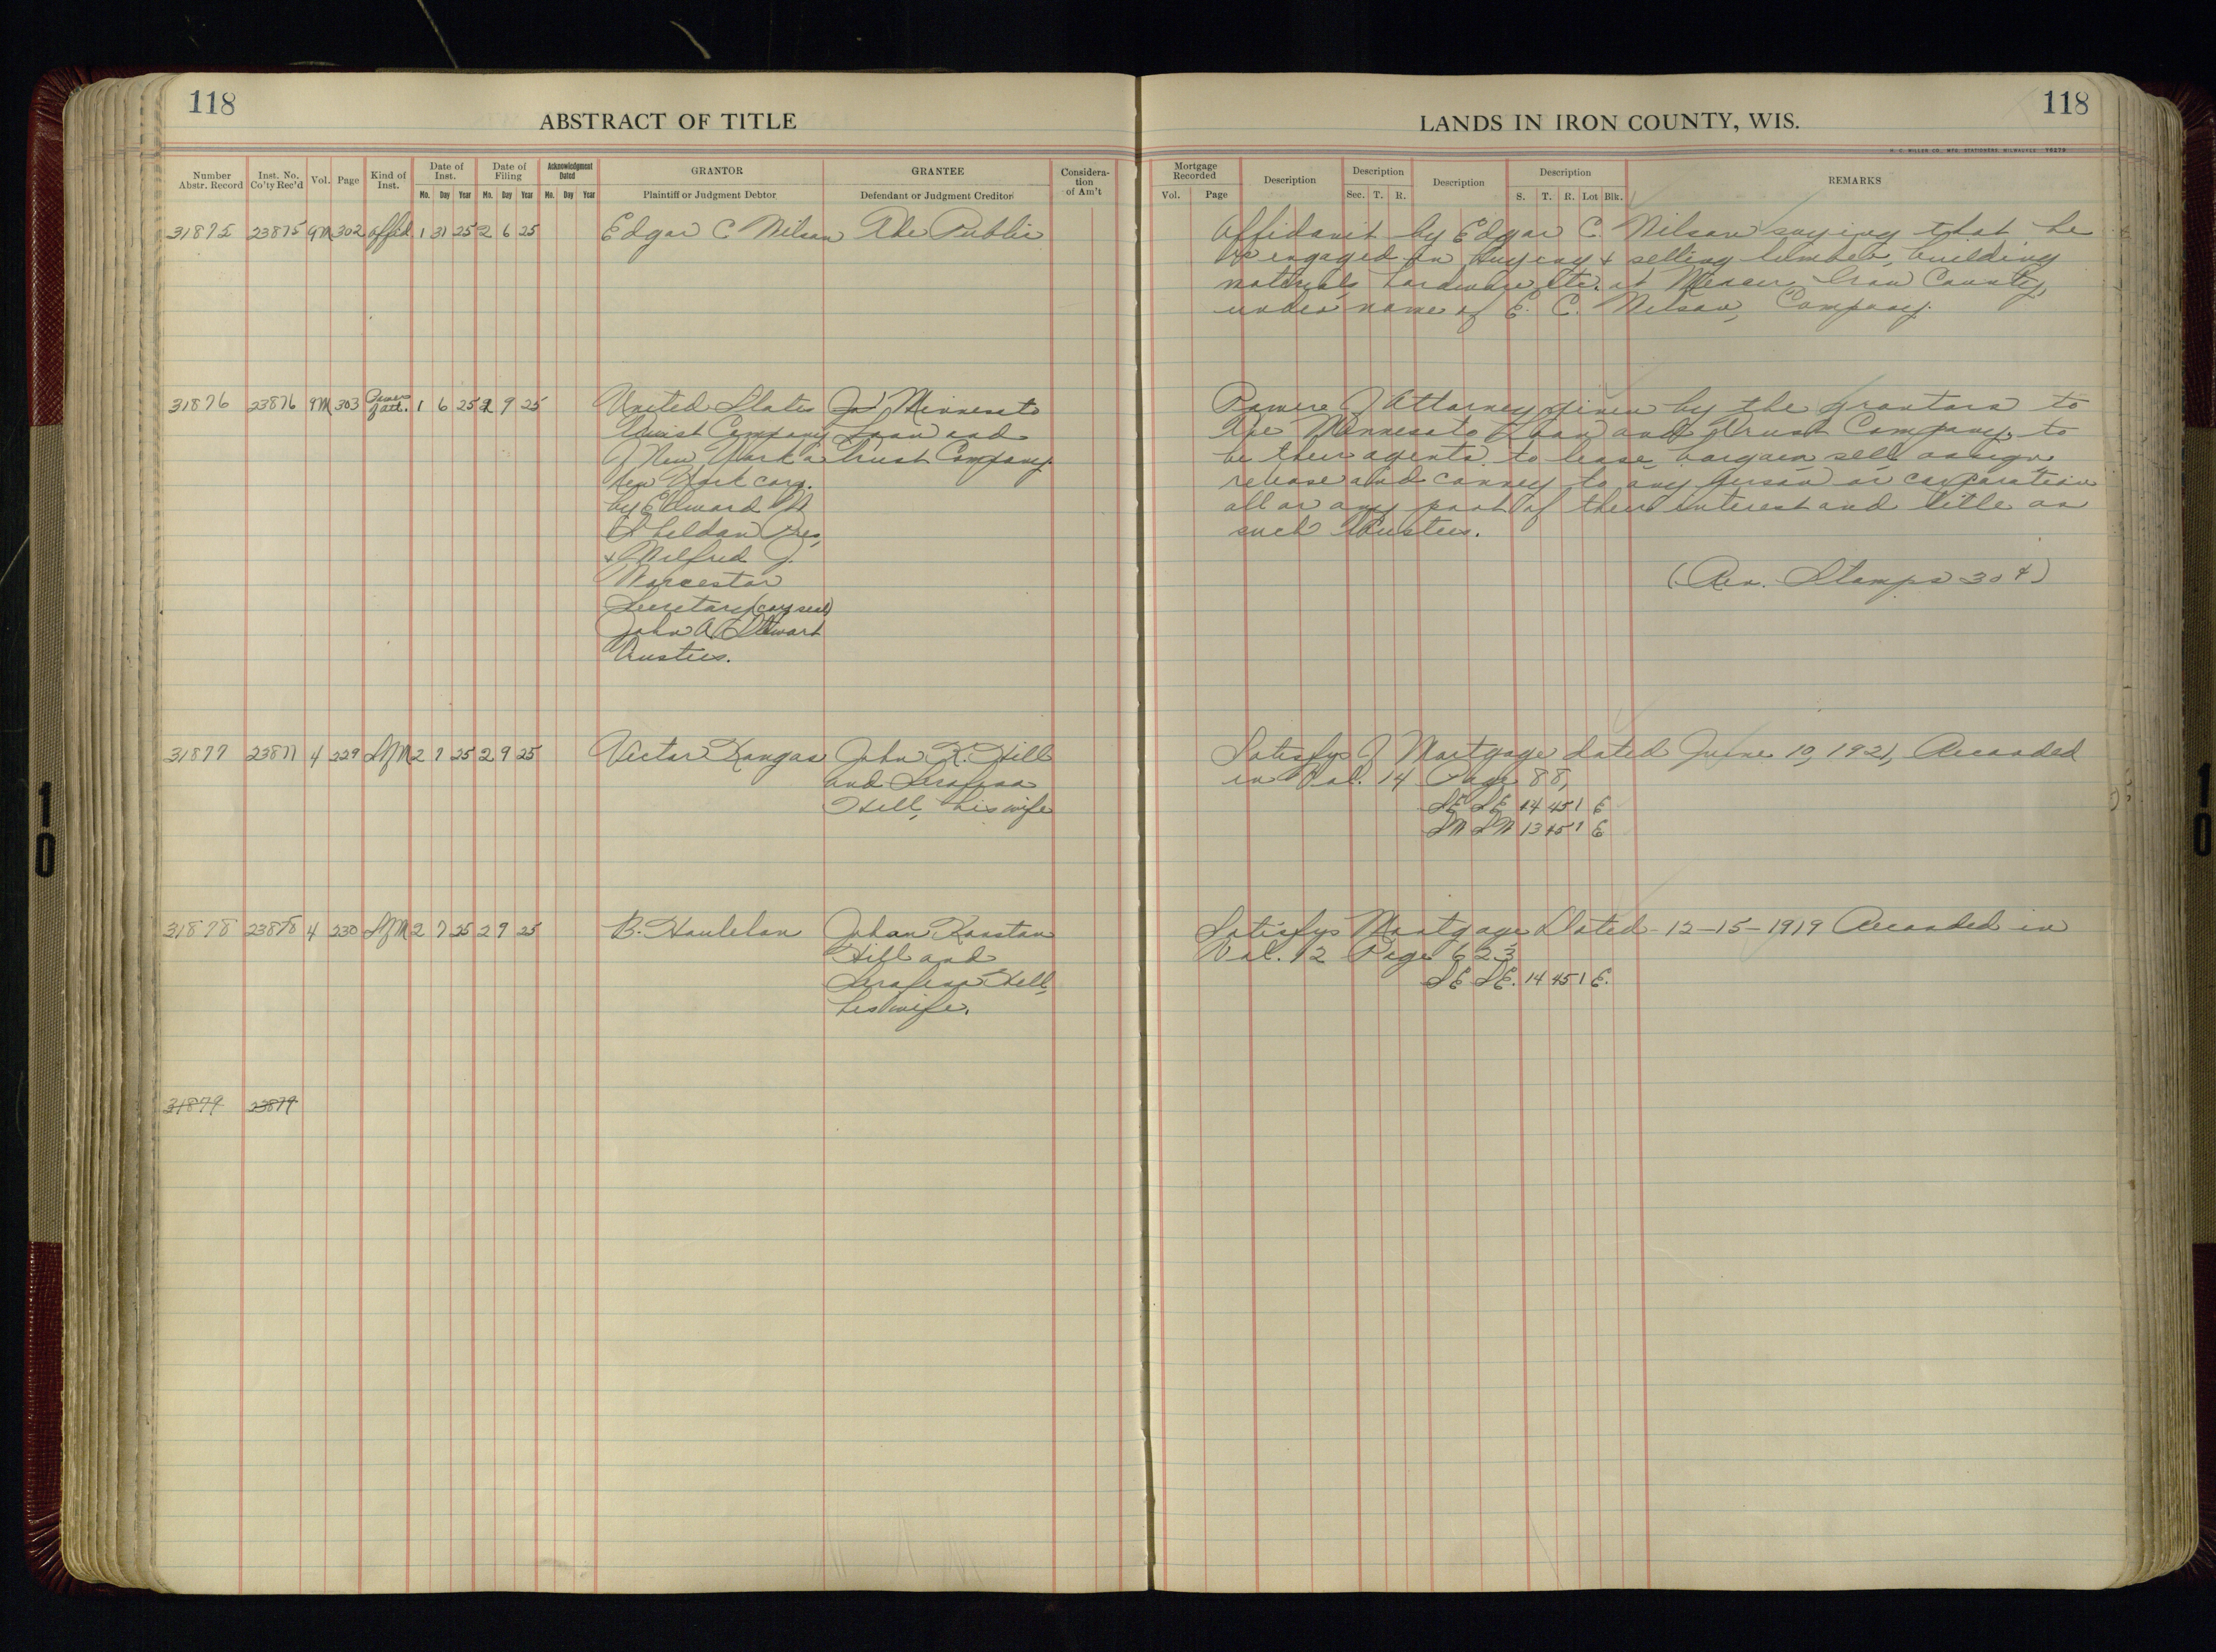 118
ABSTRACT OF TITLE
LANDS IN IRON COUNTY, WIS.
118
Number Abstr. Record
Inst. No. Co'ty Rec'd
Vol.
Page
Kind of Inst.
Date of Inst.
Mo. Day Year
Date of Filing
Mo. Day Year
Acknowledgment Dated
Mo. Day Year
GRANTOR
Plaintiff or Judgment Debtor
GRANTEE
Defendant or Judgment Creditor
Considera-
tion
of Am't
Mortgage Recorded
Vol. Page
Description
Description
Sec. T. R.
Description
Description
S. T. R. Lot Blk.
REMARKS
31875 23875 9M 302 Affid. 1 31 25 2 6 25 Edgar C Nilson The Public
Affidavit by Edgar C. Nilson saying that he
is engaged in buying & selling lumber, building
materials hardware etc. at Mercer Iron County,
under name of E. C. Nelson, Company.
31876 23876 9M 303 Power of att. 1 6 25 2 9 25
United States
Trust Company
of New York a
New York corp.
by Edward W
Sheldon Pres,
& Wilfred J.
Worcester
Secretary (corp seal)
John A Stewart
Trustees.
Minnesota
Loan and
Trust Company.
Powere of Attorney given by the grantors to
the Minnesota Loan and Trust Company, to
be their agents to lease, bargain, sell assign,
release and convey to any person or corporation
all or any part of their interest and title as
such Trustees.
(Rev. Stamps 30¢)
31877 23877 4 229 SfM 2 7 25 2 9 25 Victor Kangas
John K. Hill
and Serafina
Hill, his wife
Satisfys of Mortgage dated June 10, 1921, Recorded
in Vol. 14 Page 88,
SE SE 14 45 1 E
SW SW 13 45 1 E
31878 23878 4 230 SfM 2 7 25 2 9 25 B.
Johan Kaastan
Hill and
Serafina Hill,
his wife.
Satisfys Mortgage Dated 12-15-1919 Recorded in
Vol. 12 Page 623
SE SE. 14 45 1 E.
31879 23879
10
10